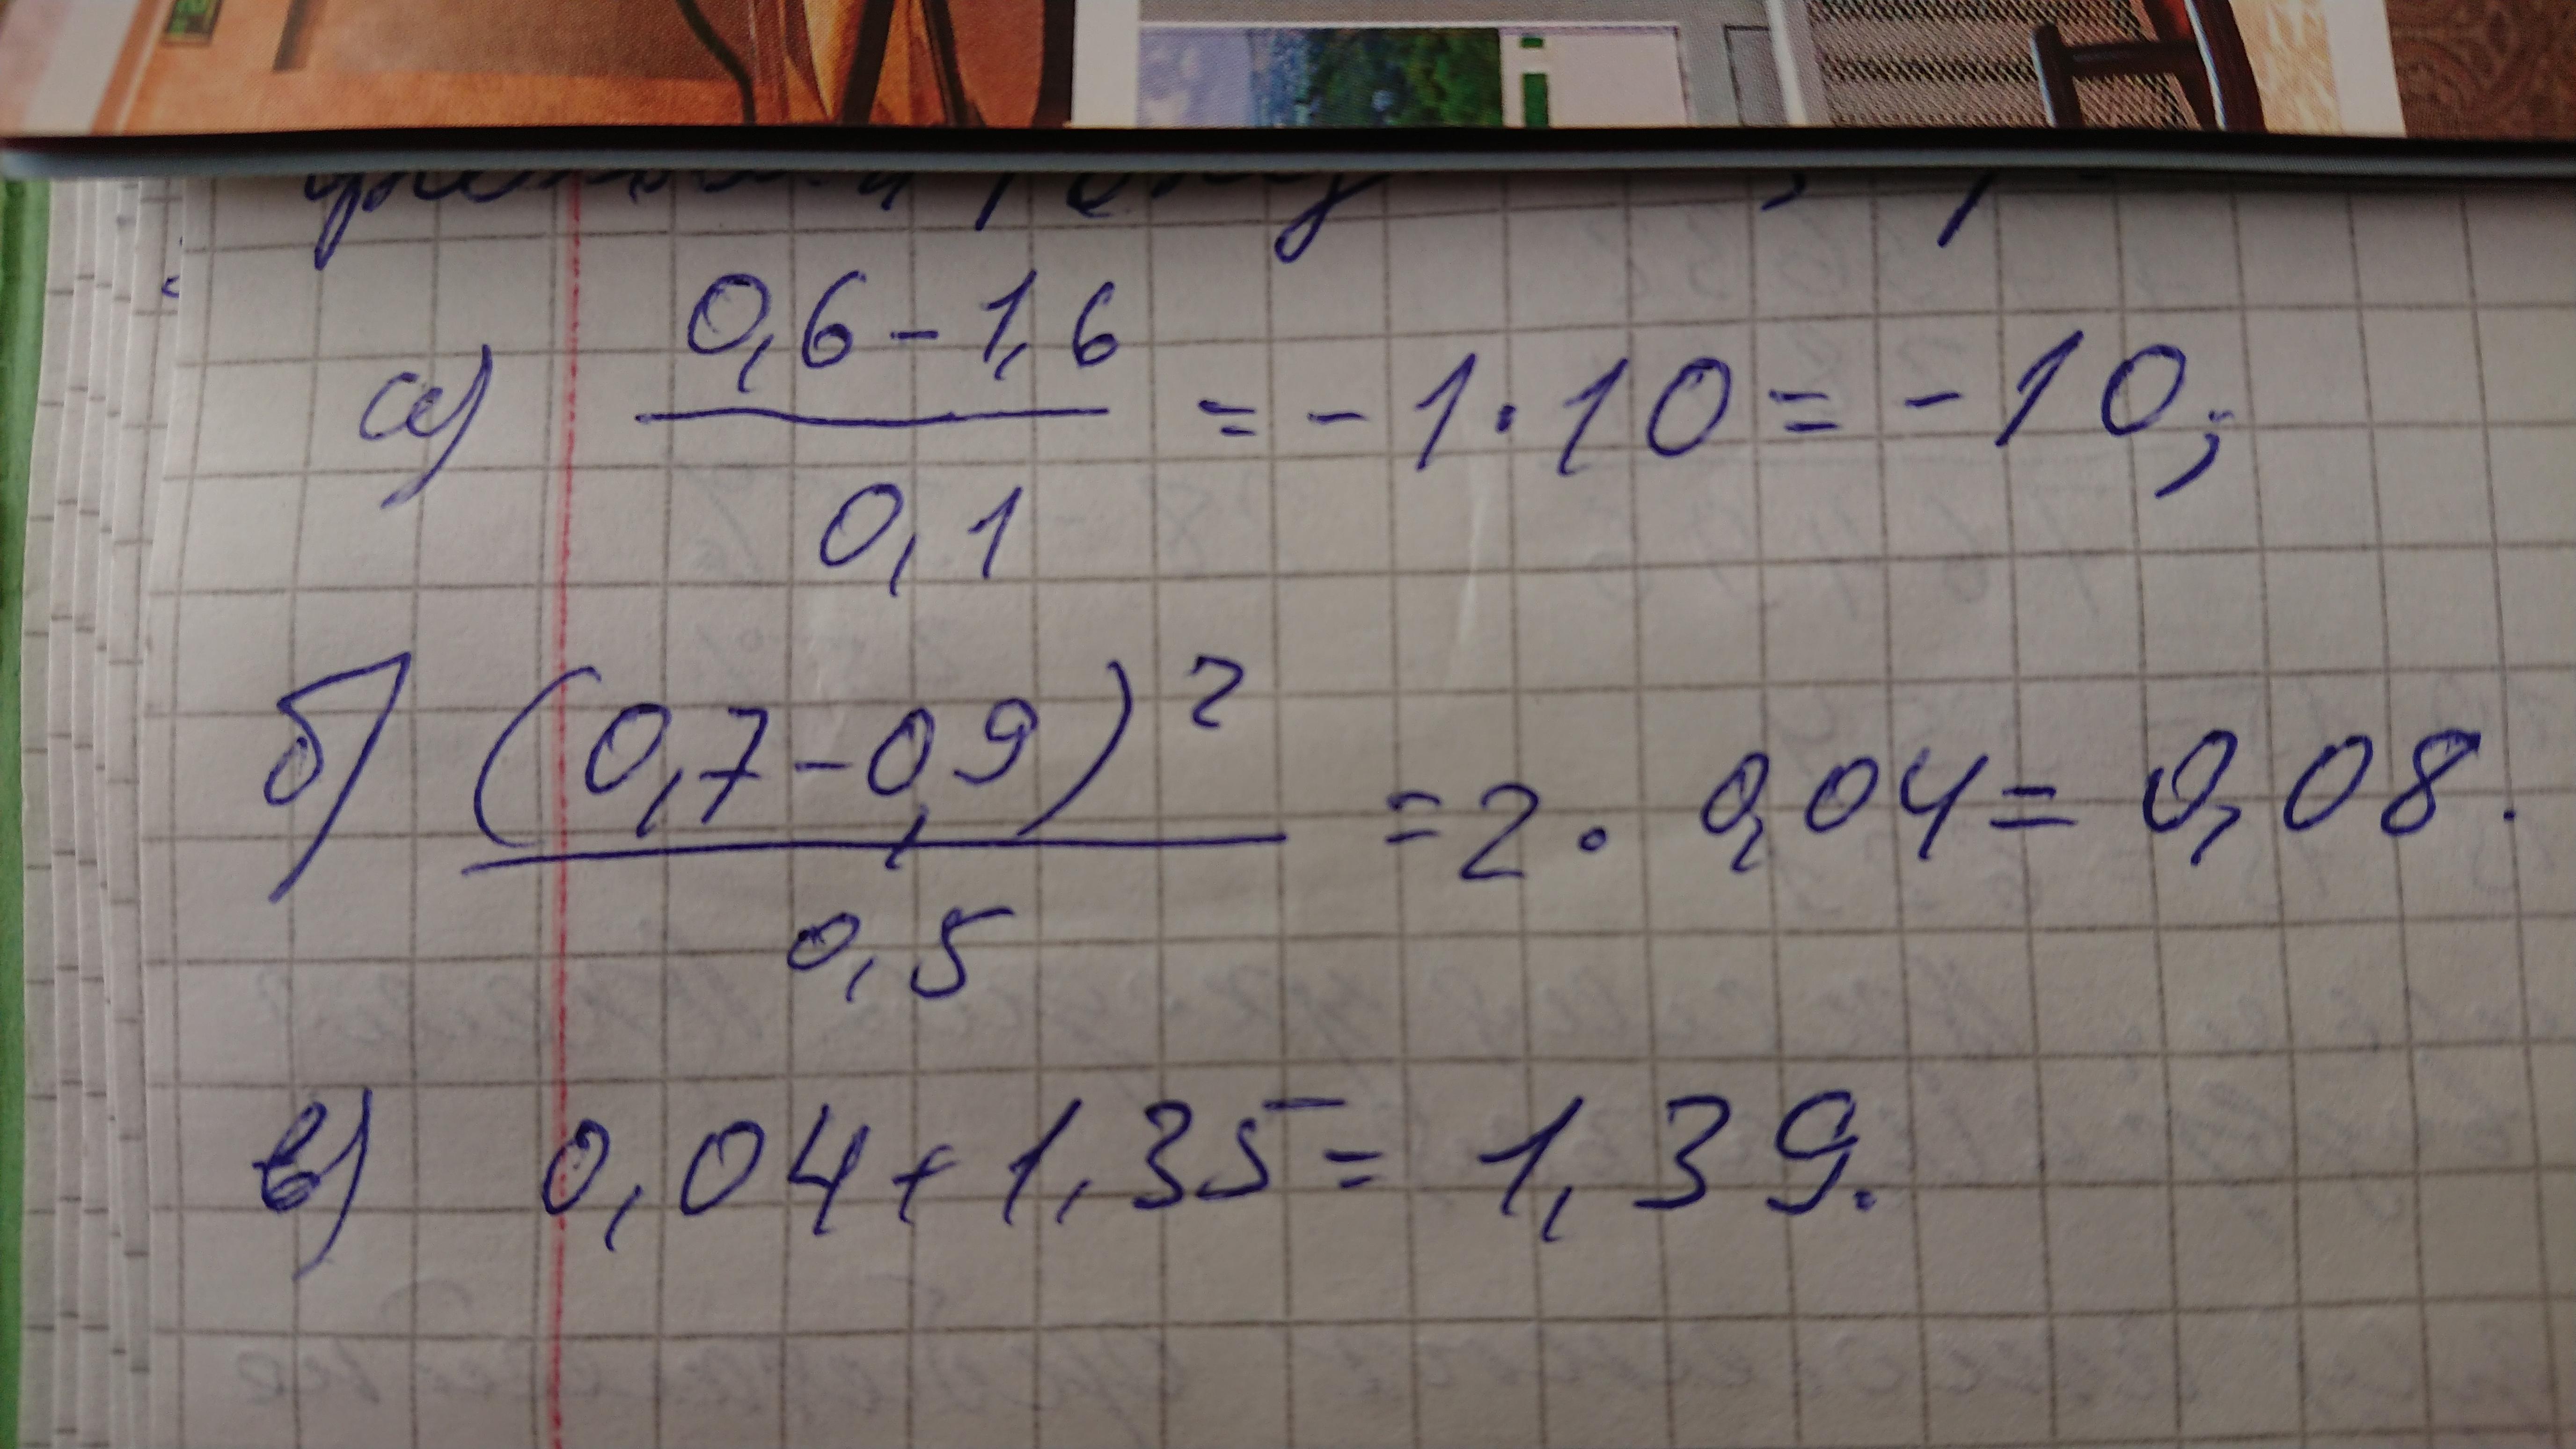 а) (0,6-1,6)/0,1 = -1·10 = -10;
б) (0,7-0,9)²/0,5 = 2·0,04 = 0,08.
в) 0,04+1,35 = 1,39.